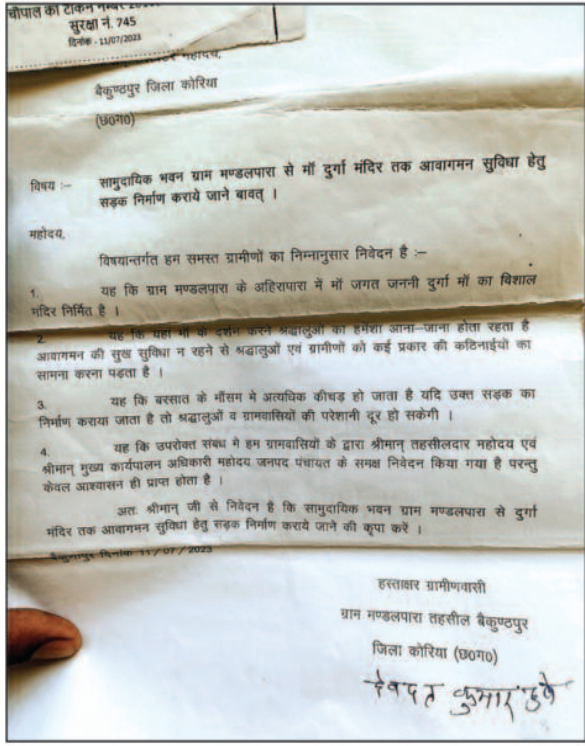 चौपाल का टोकन नम्बर
सुरक्षा नं. 745
दिनांक - 11/07/2023
महोदय,
बैकुण्ठपुर जिला कोरिया
(छ०ग०)
विषय :– सामुदायिक भवन ग्राम मण्डलपारा से मॉ दुर्गा मंदिर तक आवागमन सुविधा हेतु
सड़क निर्माण कराये जाने बावत् ।
महोदय,
विषयान्तर्गत हम समस्त ग्रामीणों का निम्नानुसार निवेदन है :–
1. यह कि ग्राम मण्डलपारा के अहिरापारा में मॉ जगत जननी दुर्गा मॉ का विशाल
मंदिर निर्मित है ।
2. यह कि यहा मॉ के दर्शन करने श्रद्धालुओं का हमेशा आना–जाना होता रहता है
आवागमन की सुख सुविधा न रहने से श्रद्धालुओं एवं ग्रामीणों को कई प्रकार की कठिनाईयों का
सामना करना पड़ता है ।
3. यह कि बरसात के मौसम मे अत्यधिक कीचड़ हो जाता है यदि उक्त सड़क का
निर्माण कराया जाता है तो श्रद्धालुओं व ग्रामवासियों की परेशानी दूर हो सकेगी ।
4. यह कि उपरोक्त संबंध मे हम ग्रामवासियों के द्वारा श्रीमान् तहसीलदार महोदय एवं
श्रीमान् मुख्य कार्यपालन अधिकारी महोदय जनपद पंचायत के समक्ष निवेदन किया गया है परन्तु
केवल आश्वासन ही प्राप्त होता है ।
अतः श्रीमान् जी से निवेदन है कि सामुदायिक भवन ग्राम मण्डलपारा से दुर्गा
मंदिर तक आवागमन सुविधा हेतु सड़क निर्माण कराये जाने की कृपा करें ।
बैकुण्ठपुर दिनांक 11 / 07 / 2023
हस्ताक्षर ग्रामीणवासी
ग्राम मण्डलपारा तहसील बैकुण्ठपुर
जिला कोरिया (छ०ग०)
देवदत्त कुमार दुबे